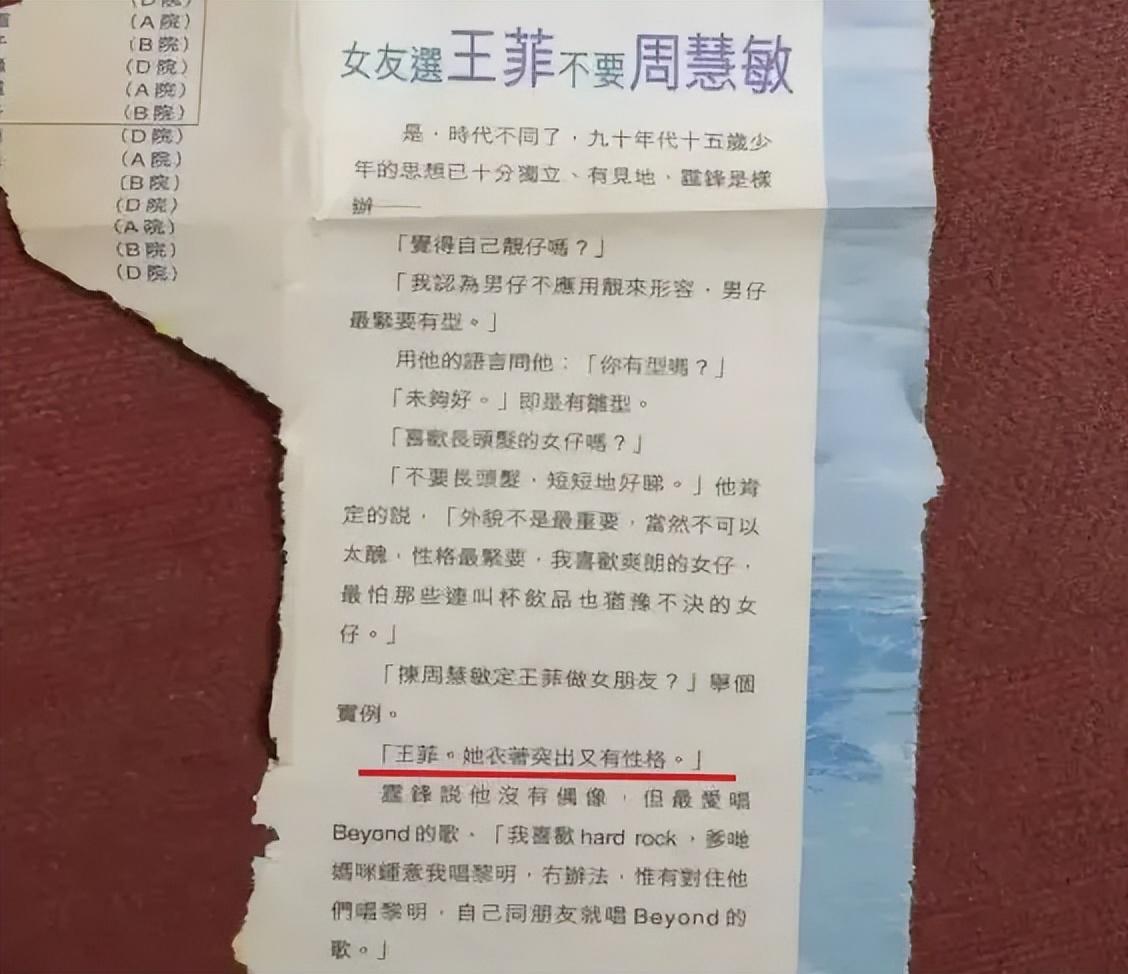 (D院)
(A院)
(B院)
(D院)
(A院)
(B院)
(D院)
(A院)
(B院)
(D院)
(A院)
(B院)
(D院)
女友選王菲不要周慧敏
是，時代不同了，九十年代十五歲少
年的思想已十分獨立、有見地，霆鋒是樣
辦——
「覺得自己靚仔嗎？」
「我認為男仔不應用靚來形容，男仔
最緊要有型。」
用他的語言問他：「你有型嗎？」
「未夠好。」即是有雛型。
「喜歡長頭髮的女仔嗎？」
「不要長頭髮，短短地好睇。」他肯
定的說，「外貌不是最重要，當然不可以
太醜，性格最緊要，我喜歡爽朗的女仔，
最怕那些連叫杯飲品也猶豫不決的女
仔。」
「揀周慧敏定王菲做女朋友？」舉個
實例。
「王菲。她衣著突出又有性格。」
霆鋒說他沒有偶像，但最愛唱
Beyond的歌、「我喜歡hard rock，爹哋
媽咪鍾意我唱黎明，冇辦法，惟有對住他
們唱黎明，自己同朋友就唱Beyond的
歌。」